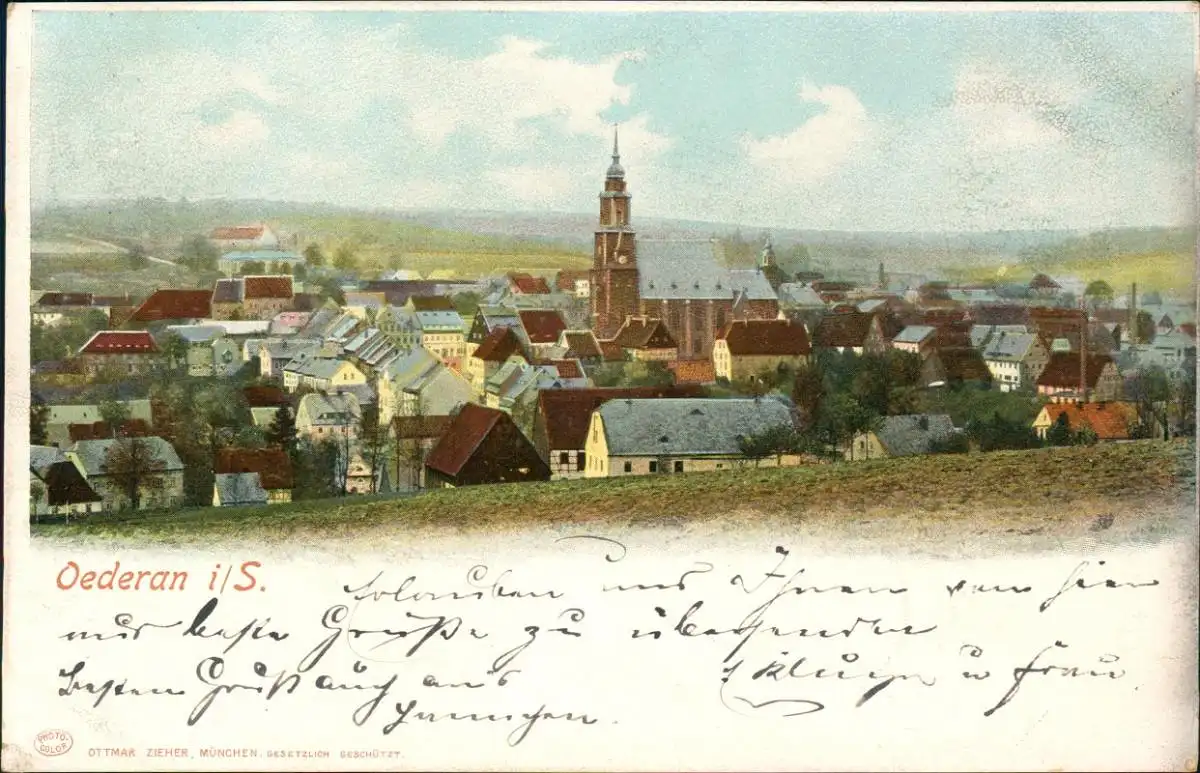 Oederan i/S.
Erlauben uns Ihnen von hier
aus beste Grüße zu übersenden
Besten Gruß auch aus u Frau
PHOTO-COLOR
OTTMAR ZIEHER, MÜNCHEN. GESETZLICH GESCHÜTZT.